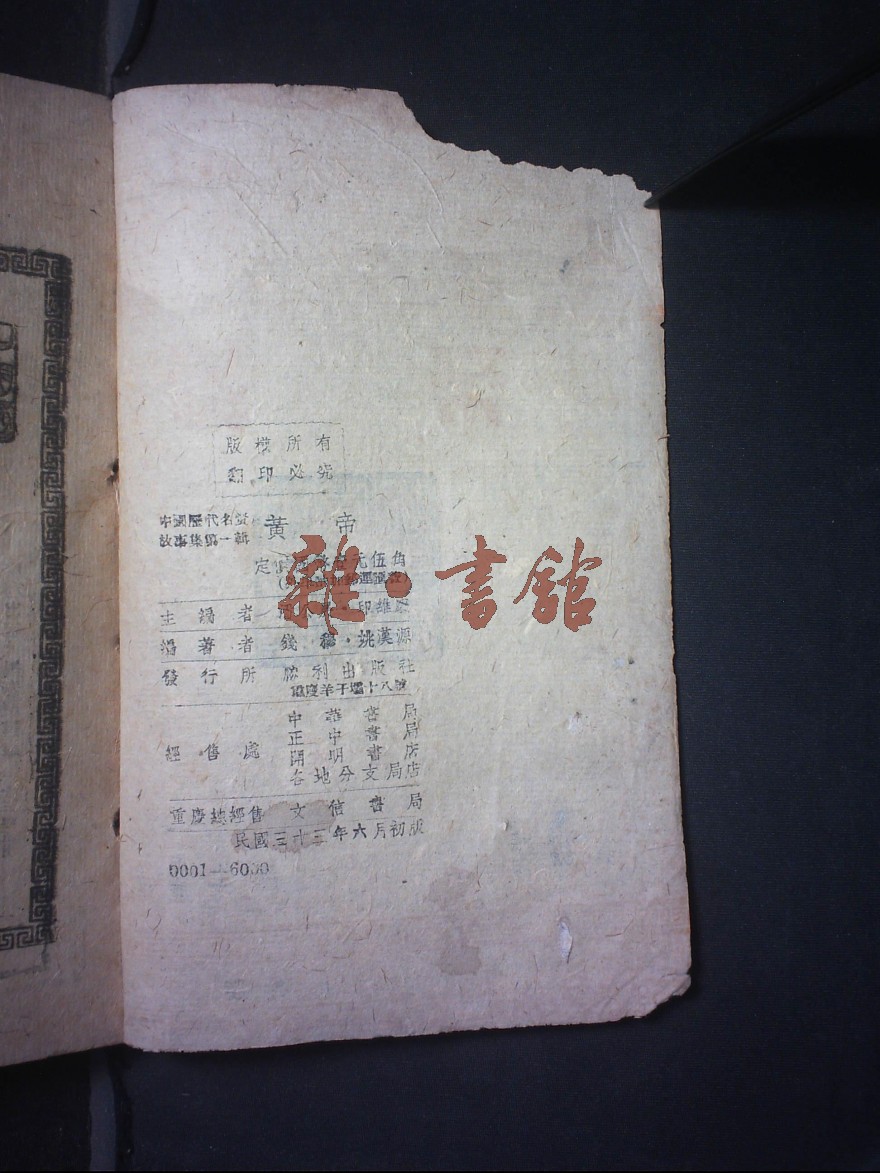 版權所有
翻印必究
中國歷代名賢
故事集第一輯
黃帝
定
元伍角
主編者 印維廉
編著者 錢穆·姚漢源
發行所 勝利出版社
重慶羊子壩十八號
經售處
中華書局
正中書局
開明書店
各地分支局店
重慶總經售 文信書局
民國三十三年六月初版
0001—6000
雜·書館